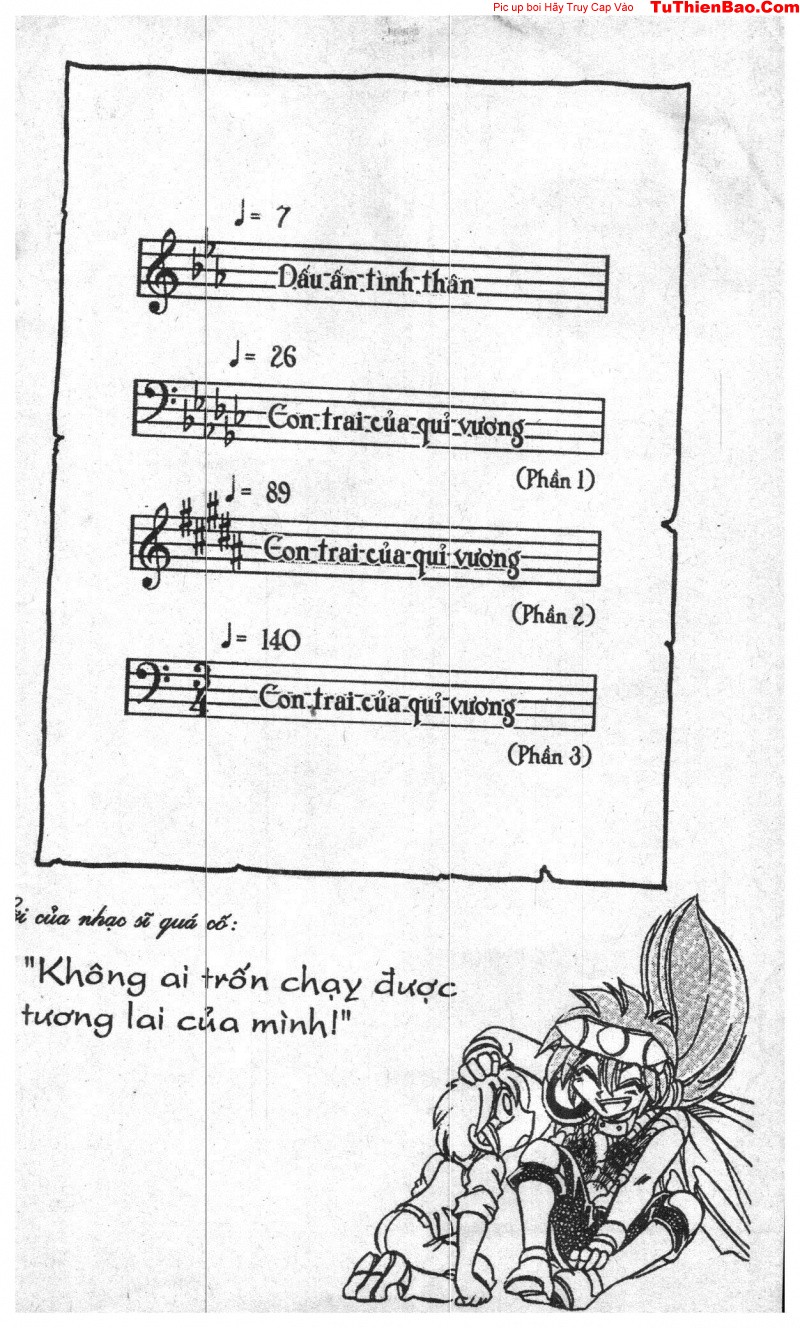 Pic up boi Hãy Truy Cap Vào TuThienBao.Com
♩= 7
Dấu ấn tình thân
♩= 26
Con trai của quỉ vương
(Phần 1)
♩= 89
Con trai của quỉ vương
(Phần 2)
♩= 140
3
4
Con trai của quỉ vương
(Phần 3)
của nhạc sĩ quá cố:
"Không ai trốn chạy được
tương lai của mình!"